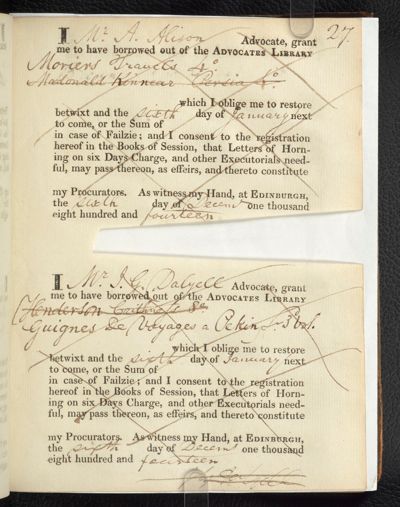 27.
I Mr. A. Alison Advocate, grant
me to have borrowed out of the ADVOCATES LIBRARY
Moriers Travels 4o
Macdonald Kinnear Persia 4o.
which I oblige me to restore
betwixt and the sixth day of January next
to come, or the Sum of
in case of Failzie; and I consent to the registration
hereof in the Books of Session, that Letters of Horn-
ing on six Days Charge, and other Executorials need-
ful, may pass thereon, as effeirs, and thereto constitute
my Procurators. As witness my Hand, at EDINBURGH,
the sixth day of Decem one thousand
eight hundred and fourteen
I Mr. J. G. Dalyell Advocate, grant
me to have borrowed out of the ADVOCATES LIBRARY
Henderson
Guignes de Voyages a Pekin 3 vol.
which I oblige me to restore
betwixt and the sixth day of January next
to come, or the Sum of
in case of Failzie; and I consent to the registration
hereof in the Books of Session, that Letters of Horn-
ing on six Days Charge, and other Executorials need-
ful, may pass thereon, as effeirs, and thereto constitute
my Procurators. As witness my Hand, at EDINBURGH,
the sixth day of Decem one thousand
eight hundred and fourteen